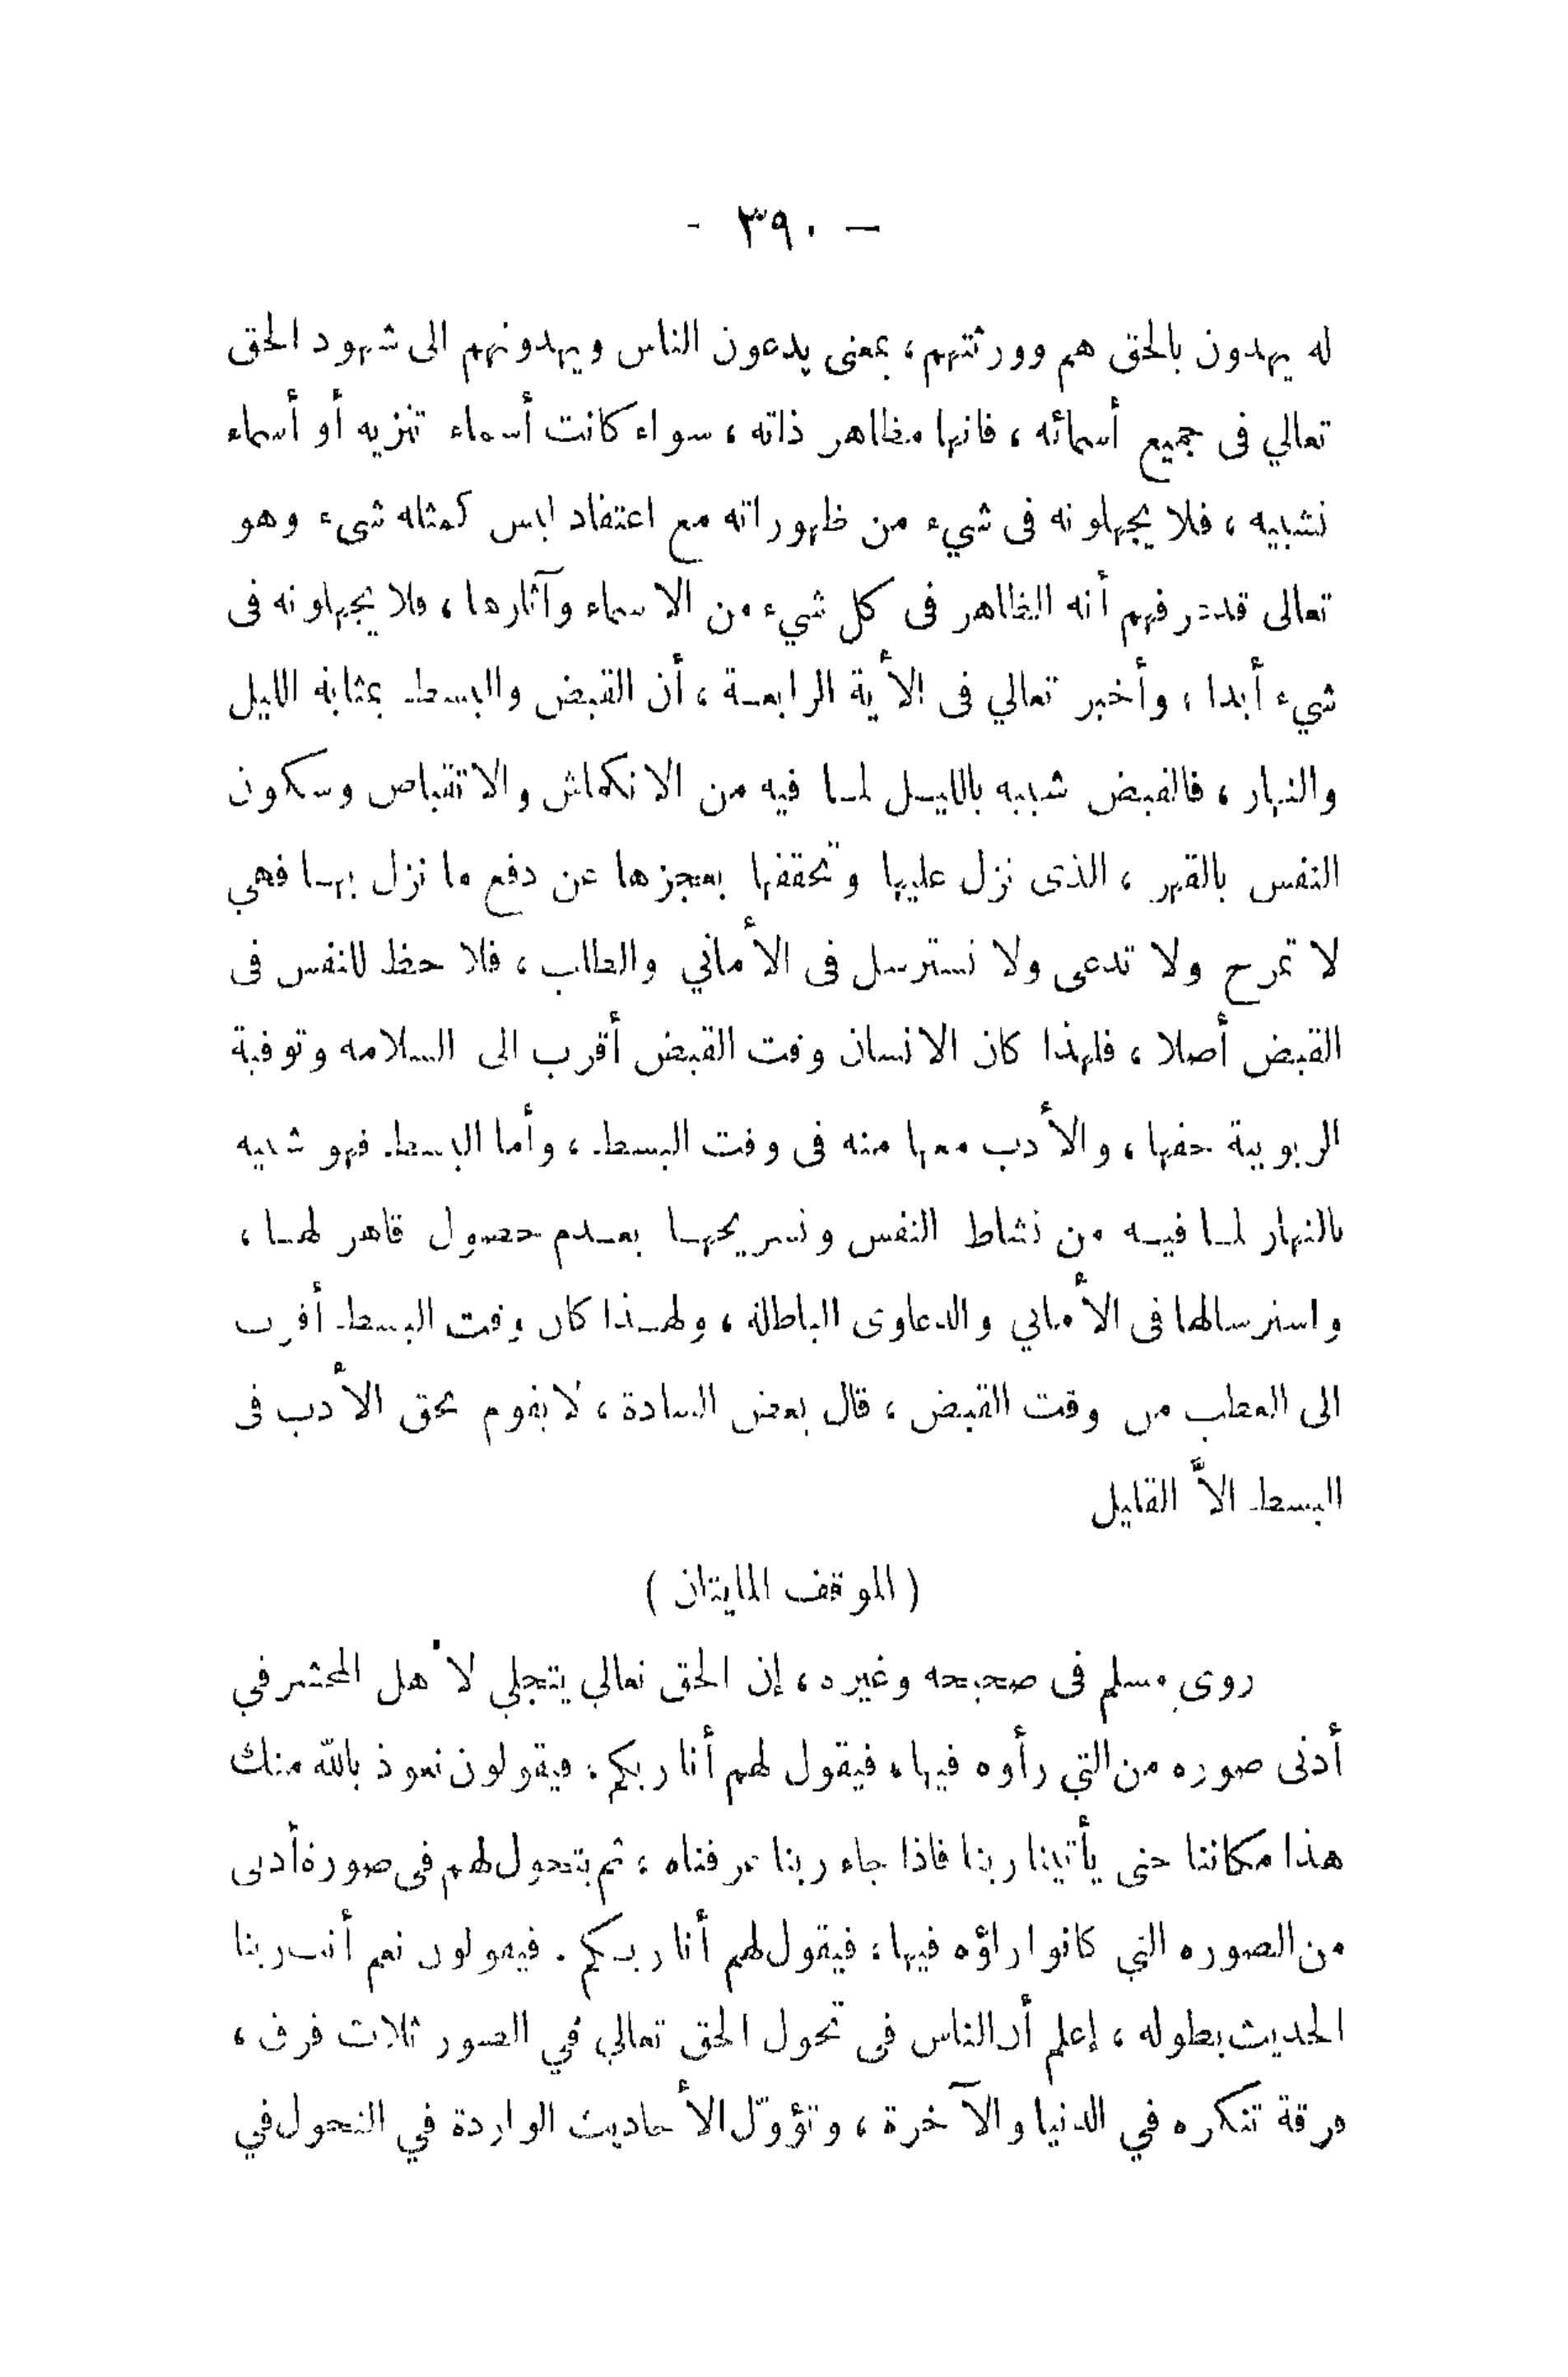 — ٣٩٠ -
له يهدون بالحق هم وورثتهم، بمعنى يدعون الناس ويهدونهم الى شهود الحق
تعالي فى جميع أسمائه، فانها مظاهر ذاته، سواء كانت أسماء تنزيه أو أسماء
تشبيه، فلا يجهلونه فى شيء من ظهوراته مع اعتقاد ليس كمثله شىء وهو
تعالى قد فهم أنه الظاهر فى كل شيء من الاسماء وآثارها، فلا يجهلونه فى
شيء أبدا، وأخبر تعالي فى الأية الرابعة، أن القبض والبسط بمثابة الليل
والنهار، فالقبض شبيه بالليل لما فيه من الانكماش والانقباص وسكون
النفس بالقهر، الذى نزل عليها وتحققها بعجزها عن دفع ما نزل بها فهي
لا تمرح ولا تدعى ولا تسترسل فى الأماني والطلب، فلا حظ للنفس فى
القبض أصلا، فلهذا كان الانسان وقت القبض أقرب الى السلامه وتوفية
الربوبية حقها، والأدب معها منه فى وقت البسط، وأما البسط فهو شبيه
بالنهار لما فيه من نشاط النفس وتسريحها بعدم حصول قاهر لها،
واسترسالها فى الأماني والدعاوى الباطلة، ولهذا كان وقت البسط أقرب
الى العطب من وقت القبض، قال بعض السادة، لا يقوم بحق الأدب فى
البسط الاَّ القليل
( الموقف المايتان )
روى مسلم فى صحيحه وغيره، إن الحق تعالي يتجلي لأهل المحشر في
أدنى صوره من التي رأوه فيها، فيقول لهم أنا ربكم. فيقولون نعوذ بالله منك
هذا مكاننا حتى يأتينا ربنا فاذا جاء ربنا عرفناه، ثم يتحول لهم فى صورة أدنى
من الصوره التي كانوا راؤه فيها، فيقول لهم أنا ربكم. فيقولون نعم أنت ربنا
الحديث بطوله، إعلم أن الناس فى تحول الحق تعالي في الصور ثلاث فرق،
فرقة تنكره في الدنيا والآخرة، وتؤوّل الأحاديث الواردة في التحول في